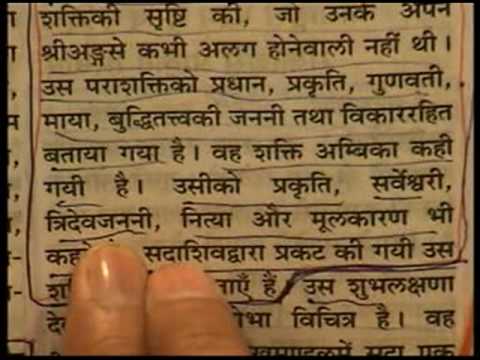 शक्तिकी सृष्टि की, जो उनके अपने
श्रीअङ्गसे कभी अलग होनेवाली नहीं थी।
उस पराशक्तिको प्रधान, प्रकृति, गुणवती,
माया, बुद्धितत्त्वकी जननी तथा विकाररहित
बताया गया है। वह शक्ति अम्बिका कही
गयी है। उसीको प्रकृति, सर्वेश्वरी,
त्रिदेवजननी, नित्या और मूलकारण भी
सदाशिवद्वारा प्रकट की गयी उस
हैं, उस शुभलक्षणा
विचित्र है। वह
सदा एक